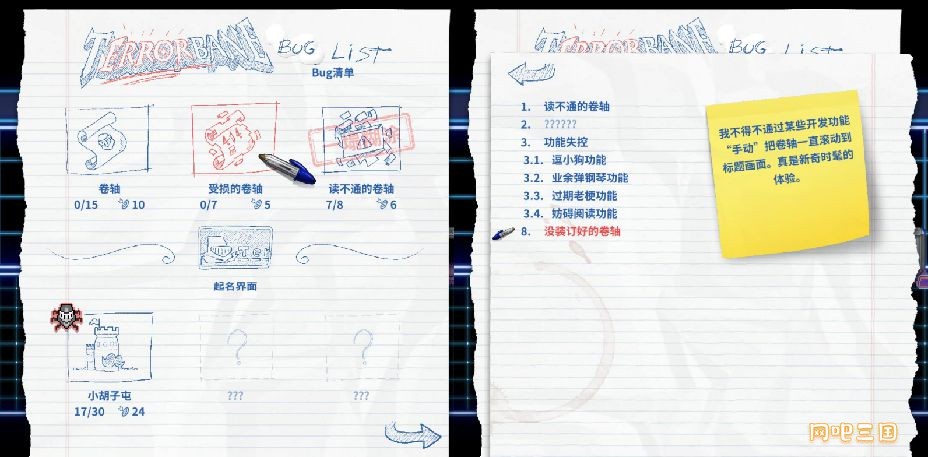 TERRORBANE BUG LIST
Bug清单
卷轴
受损的卷轴
读不通的卷轴
0/15 10
0/7 5
7/8 6
起名界面
?
?
小胡子屯
???
???
17/30 24
TERRORBANE BUG LIST
1. 读不通的卷轴
2. ??????
3. 功能失控
3.1. 逗小狗功能
3.2. 业余弹钢琴功能
3.3. 过期老梗功能
3.4. 妨碍阅读功能
8. 没装订好的卷轴
我不得不通过某些开发功能
“手动”把卷轴一直滚动到
标题画面。真是新奇时髦的
体验。
网吧三国